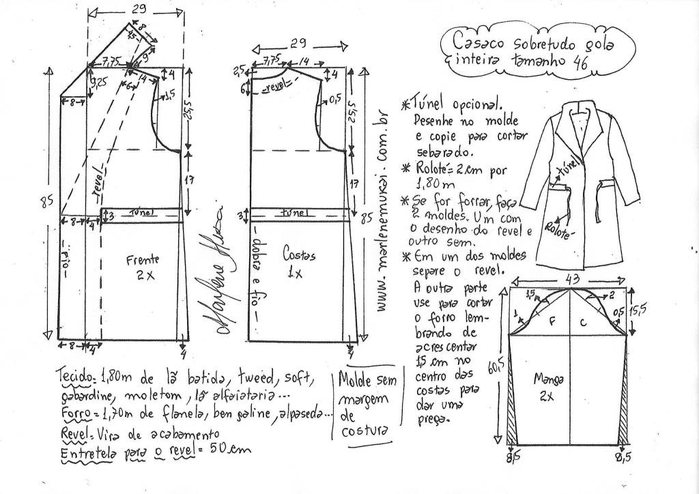 Casaco sobretudo gola
inteira tamanho 46
29
8
15
9
7,75
14
4
9,25
8
6
1,5
25,5
17
revel
85
3
túnel
fio
Frente
2x
8
4
4
29
2,5
7,75
14
4
6
revel
0,5
25,5
17
3
túnel
85
dobra e fio
Costas
1x
4
Marlene Mukai
www.marlenemukai.com.br
* Túnel opcional.
Desenhe no molde
e copie para cortar
sebarado.
* Rolotê = 2cm por
1,80m
* Se for forrar, faça
2 moldes. Um com
o desenho do revel e
outro sem.
* Em um dos moldes
separe o revel.
A outra parte
use para cortar
o forro lem-
brando de
acrescentar
15cm no
centro das
costas para
dar uma
prega.
túnel
Rolotê
43
1,5
2
1
0,5
F
C
15,5
60,5
Manga
2x
8,5
8,5
Tecido = 1,80m de lã batida, tweed, soft,
gabardine, moletom, lã alfaiataria...
Forro = 1,70m de flanela, bengaline, alpaseda...
Revel = Vira de acabamento
Entretela para o revel = 50cm
Molde sem
margem
de
costura